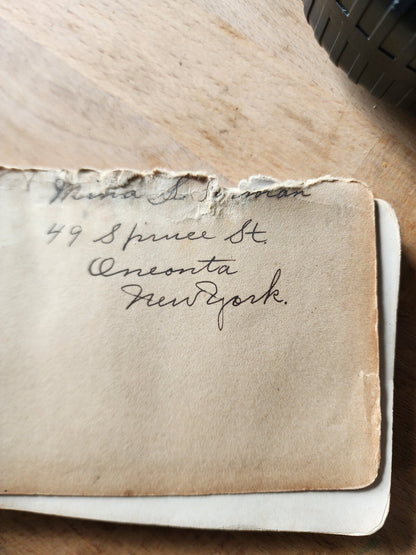 Mina S.
49 Spruce St.
Oneonta
New York.